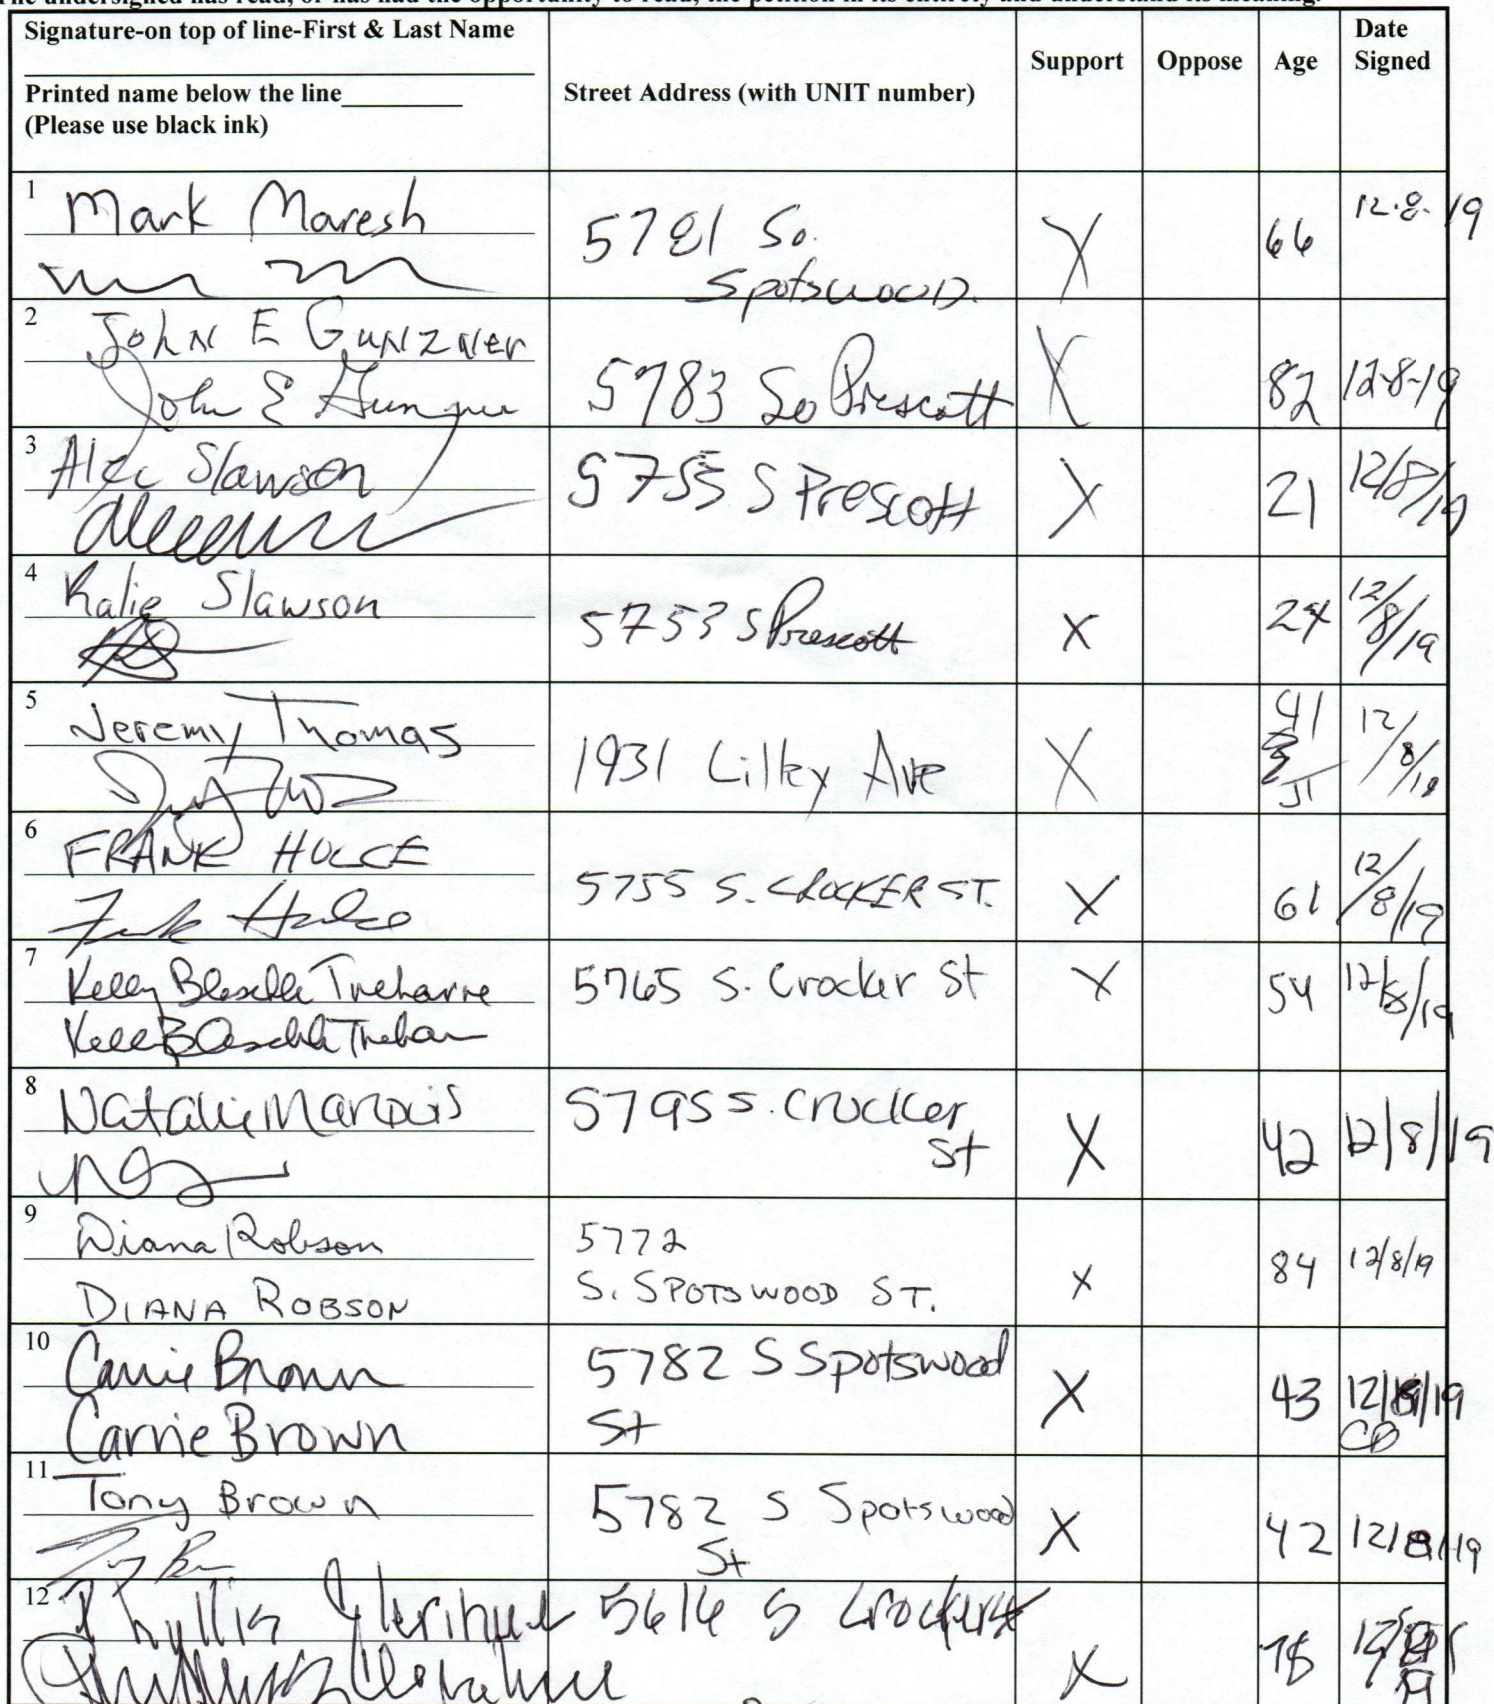 The undersigned has read, or has had the opportunity to read, the petition in its entirety and understand its meaning.
Signature-on top of line-First & Last Name
Printed name below the line
(Please use black ink)
Street Address (with UNIT number)
Support
Oppose
Age
Date
Signed
1 Mark Maresh
5781 So.
Spotswood.
X
66
12.8.19
2 John E Gunzner
John E Gunzner
5783 So Prescott
X
82
12-8-19
3 Alec Slawson
5753 S Prescott
X
21
12/8/19
4 Kalie Slawson
5753 S Prescott
X
24
12/8/19
5 Jeremy Thomas
1931 Lilley Ave
X
41
JT
12/8/19
6 FRANK HULCE
Frank Hulce
5755 S. CROCKER ST.
X
61
12/8/19
7 Kelly Blaschke Treharne
Kelly Blaschke Treharne
5765 S. Crocker St
X
54
12/8/19
8 Natalie Marquis
5795 S. Crocker
St
X
42
12/8/19
9 Diana Robson
DIANA ROBSON
5772
S. SPOTSWOOD ST.
X
84
12/8/19
10 Carrie Brown
Carrie Brown
5782 S Spotswood
St
X
43
12/8/19
CB
11 Tony Brown
Tony Brown
5782 S Spotswood
St
X
42
12/8/19
12 Phyllis Clerihue
Phyllis Clerihue
5614 S Crocker St
X
78